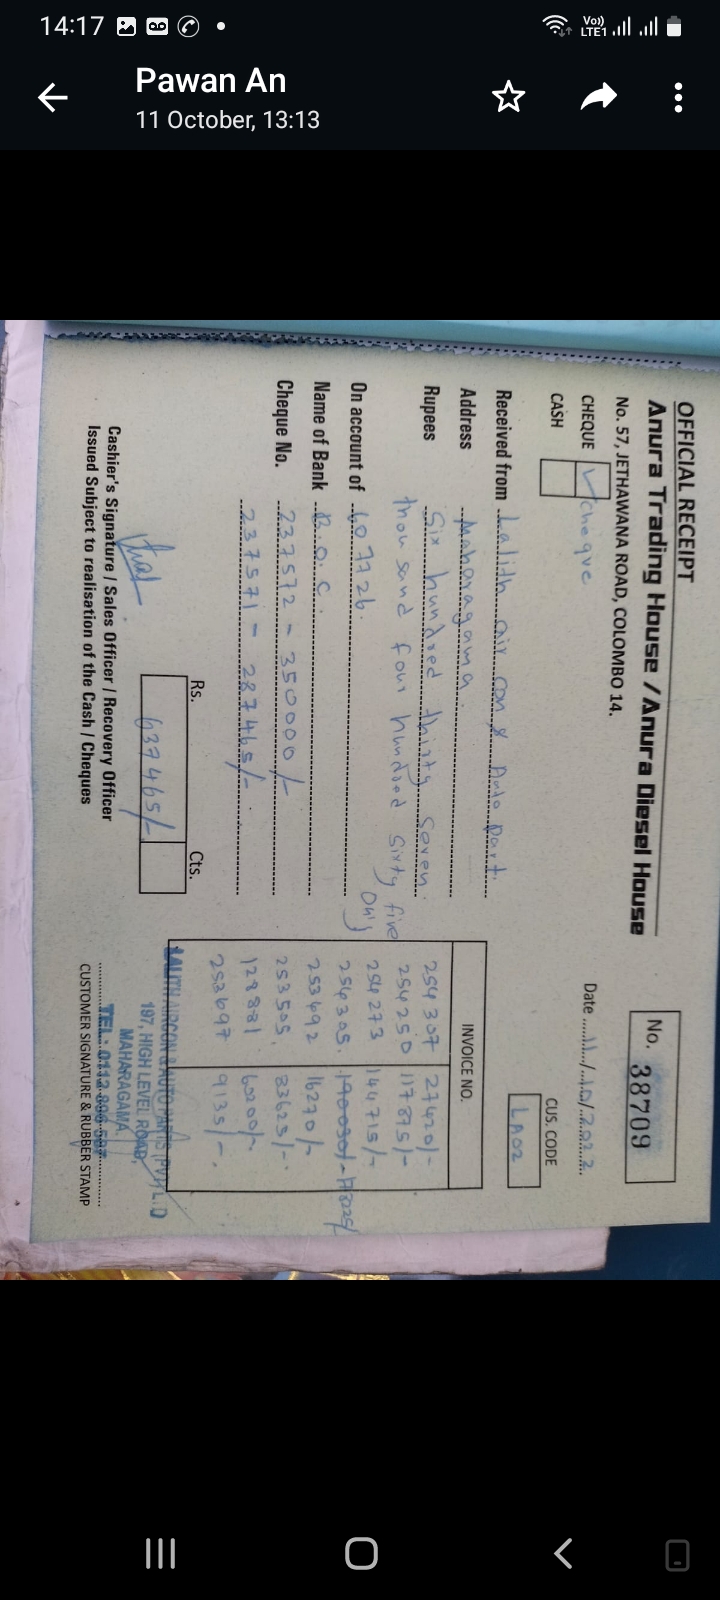 14:17
Vo)) LTE1
Pawan An
11 October, 13:13
OFFICIAL RECEIPT
Anura Trading House / Anura Diesel House
No. 57, JETHAWANA ROAD, COLOMBO 14.
No. 38709
CHEQUE cheque
CASH
Date 11/10/2022
CUS. CODE
LA02
Received from Lalith air con & Auto Part.
Address Maharagama.
Rupees Six hundred thirty Seven
thousand four hundred Sixty five
Only
On account of 607726.
Name of Bank B.O.C.
Cheque No. 237572 - 350000/-
237571 - 287465/-
INVOICE NO.
254307 27420/-
254250 117875/-
254273 144715/-
254305. 190090/- 178225/
253692 16270/-
253505. 83625/-
128881 60200/-
253697 9135/-
Rs. Cts.
637465/-
Cashier's Signature / Sales Officer / Recovery Officer
Issued Subject to realisation of the Cash / Cheques
LALITH AIRCON & AUTO PARTS (PVT) LTD
197, HIGH LEVEL ROAD,
MAHARAGAMA.
TEL: 0112
CUSTOMER SIGNATURE & RUBBER STAMP